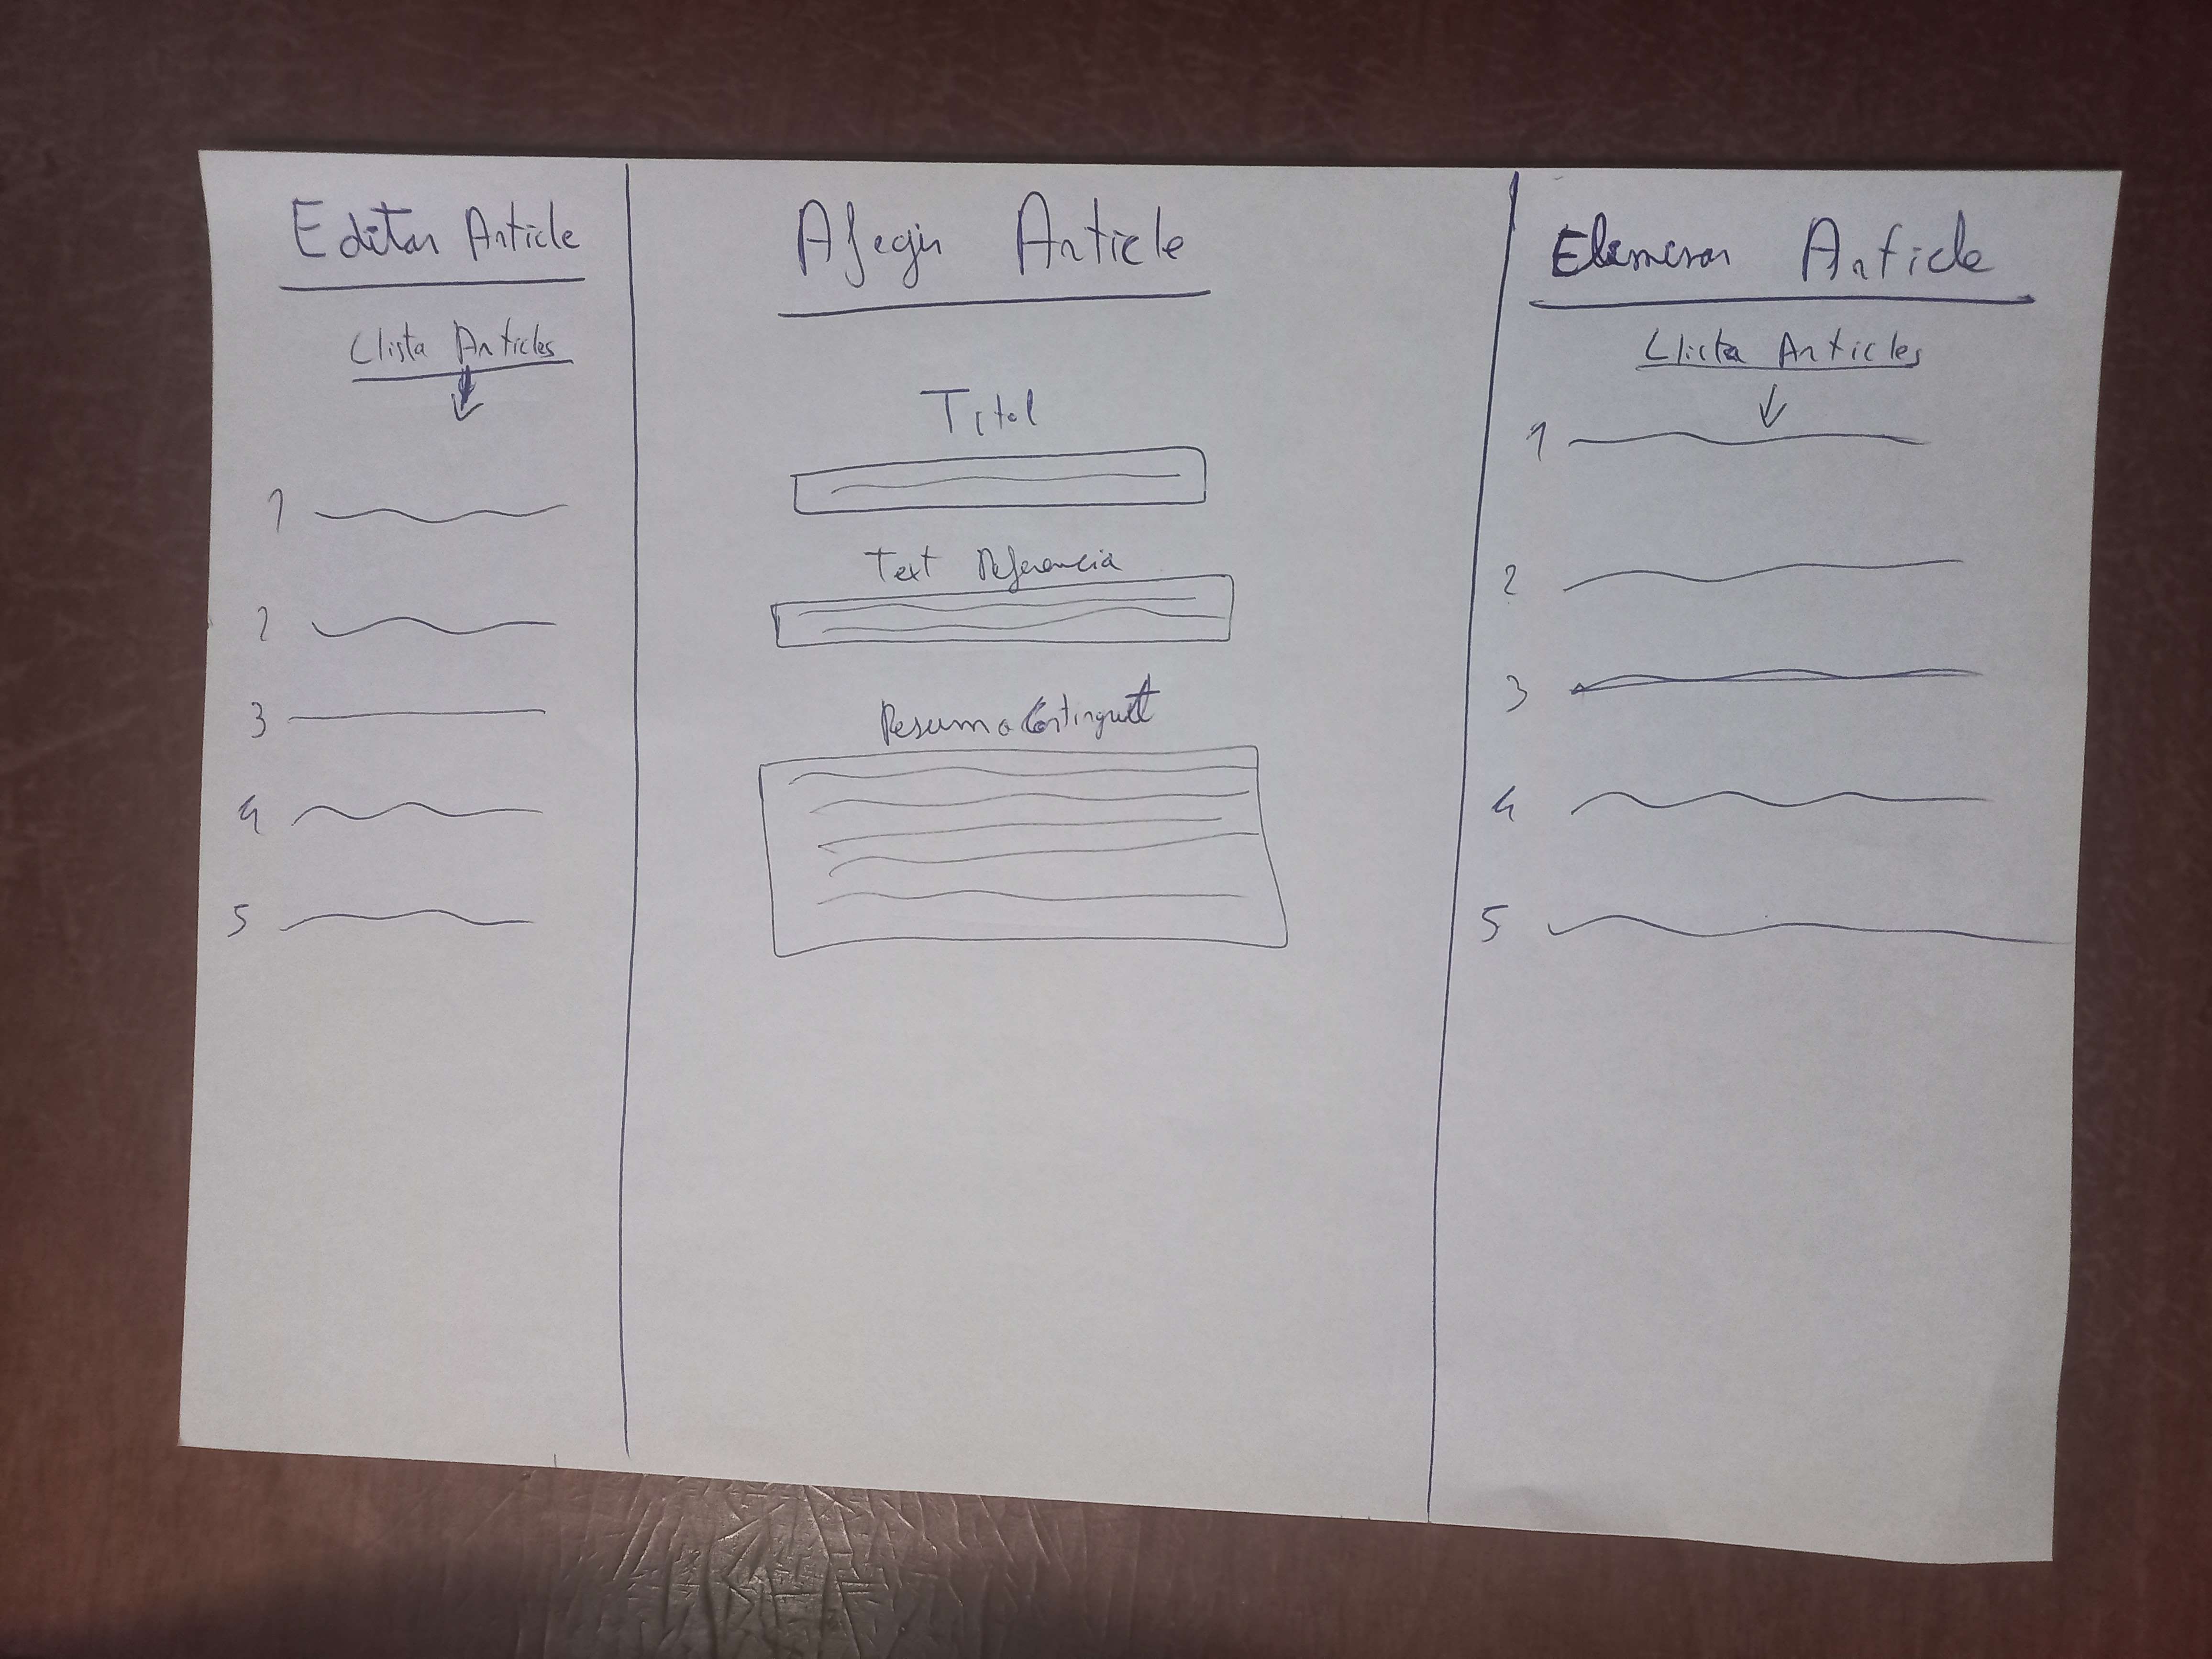 Editar Article
Llista Articles
1
2
3
4
5
Afegir Article
Titol
Text Referencia
Resum o Contingut
Eliminar Article
Llista Articles
1
2
3
4
5